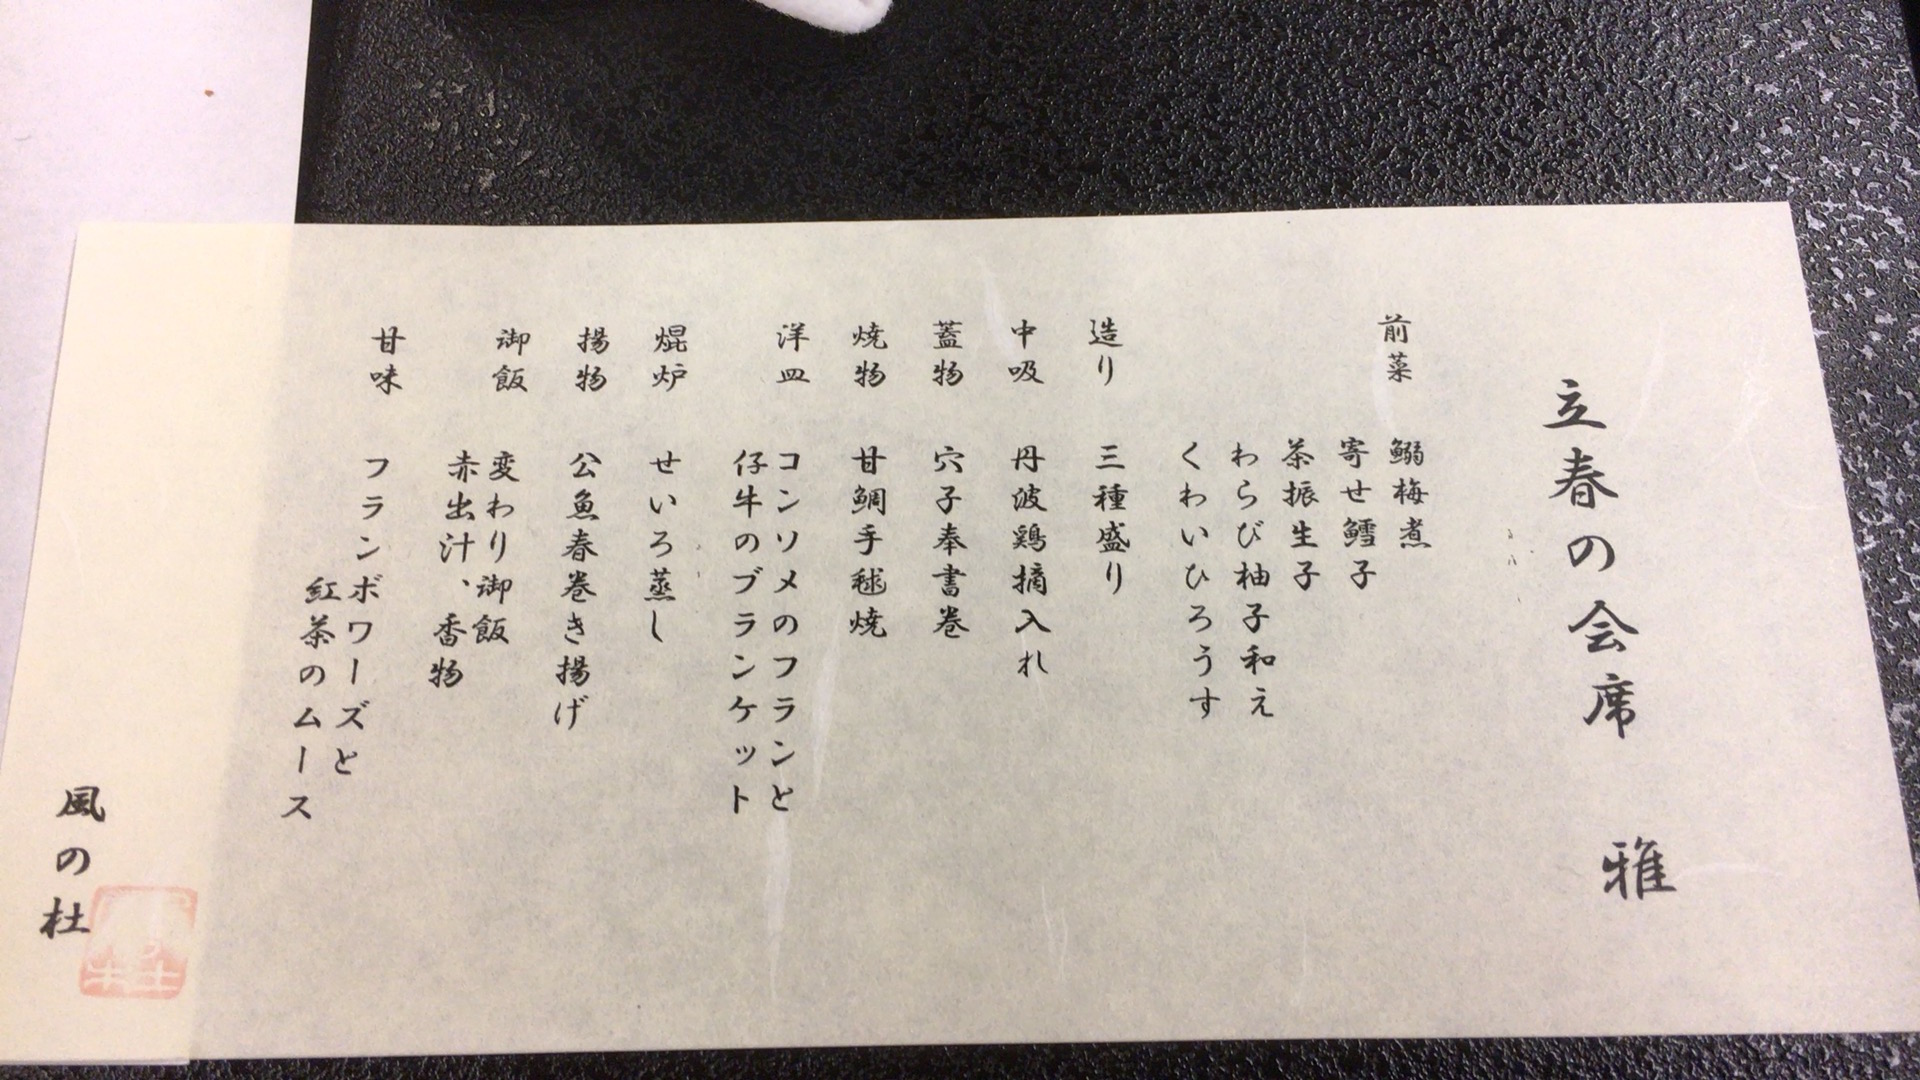 立春の会席 雅
前菜 鰯梅煮
寄せ鱈子
茶振生子
わらび柚子和え
くわいひろうす
造り 三種盛り
中吸 丹波鶏摘入れ
蓋物 穴子奉書巻
焼物 甘鯛手毬焼
洋皿 コンソメのフランと
仔牛のブランケット
焜炉 せいろ蒸し
揚物 公魚春巻き揚げ
御飯 変わり御飯
赤出汁、香物
甘味 フランボワーズと
紅茶のムース
風の杜